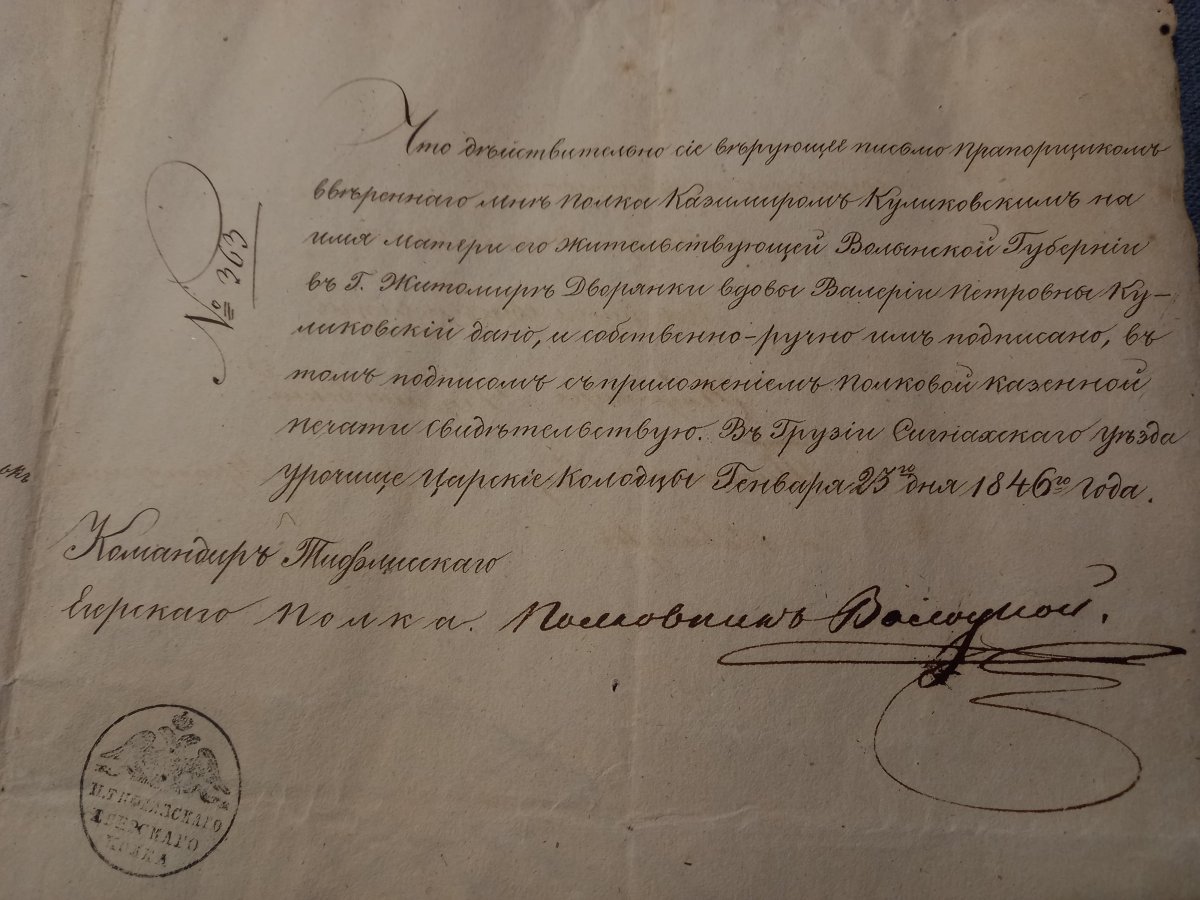 № 363
Что дѣйствительно сіе вѣрующее письмо прапорщикомъ
ввѣреннаго мнѣ полка Казимиромъ Куликовскимъ на
имя матери его жительствующей Волынской Губерніи
въ Г. Житомирѣ Дворянки вдовы Валеріи Петровны Ку-
ликовскій дано, и собственно-ручно имъ подписано, въ
томъ подписомъ съ приложеніемъ полковой казенной
печати свидѣтельствую. Въ Грузіи Сигнахскаго уѣзда
урочище Царскіе Колодцы Генваря 25го дня 1846го года.
Командиръ Тифлисскаго
Егерскаго Полка. Полковникъ
ЕГЕРСКАГО
ПОЛКА